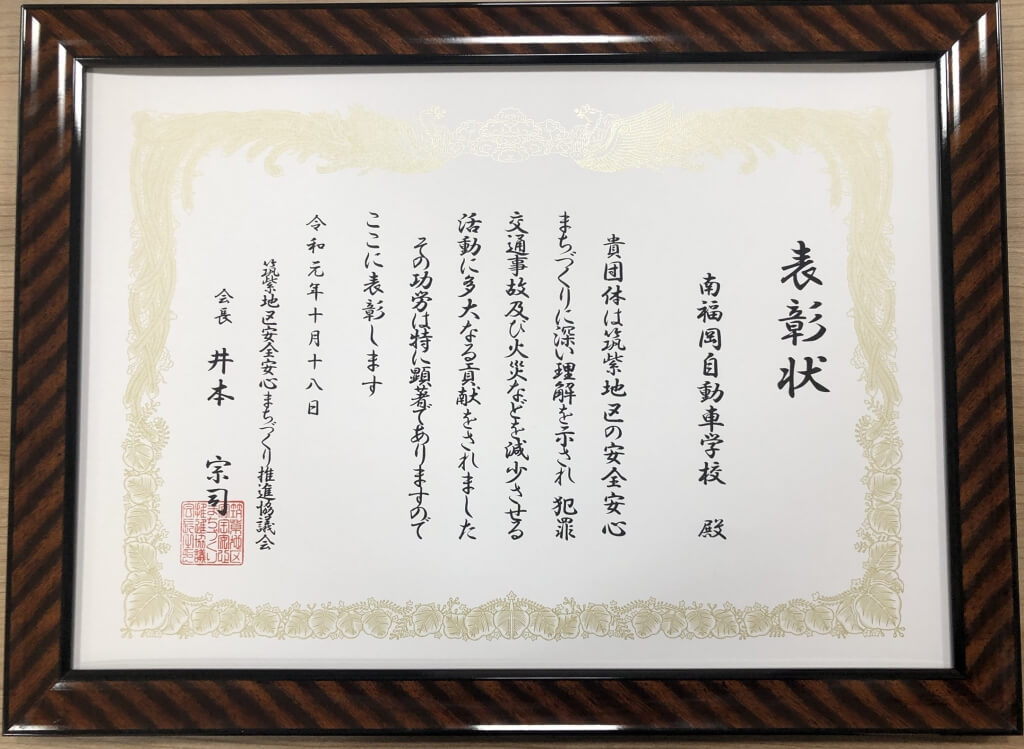 表彰状
南福岡自動車学校 殿
貴団体は筑紫地区の安全安心
まちづくりに深い理解を示され 犯罪
交通事故及び火災などを減少させる
活動に多大なる貢献をされました
その功労は特に顕著でありますので
ここに表彰します
令和元年十月十八日
筑紫地区安全安心まちづくり推進協議会
会長 井本 宗司